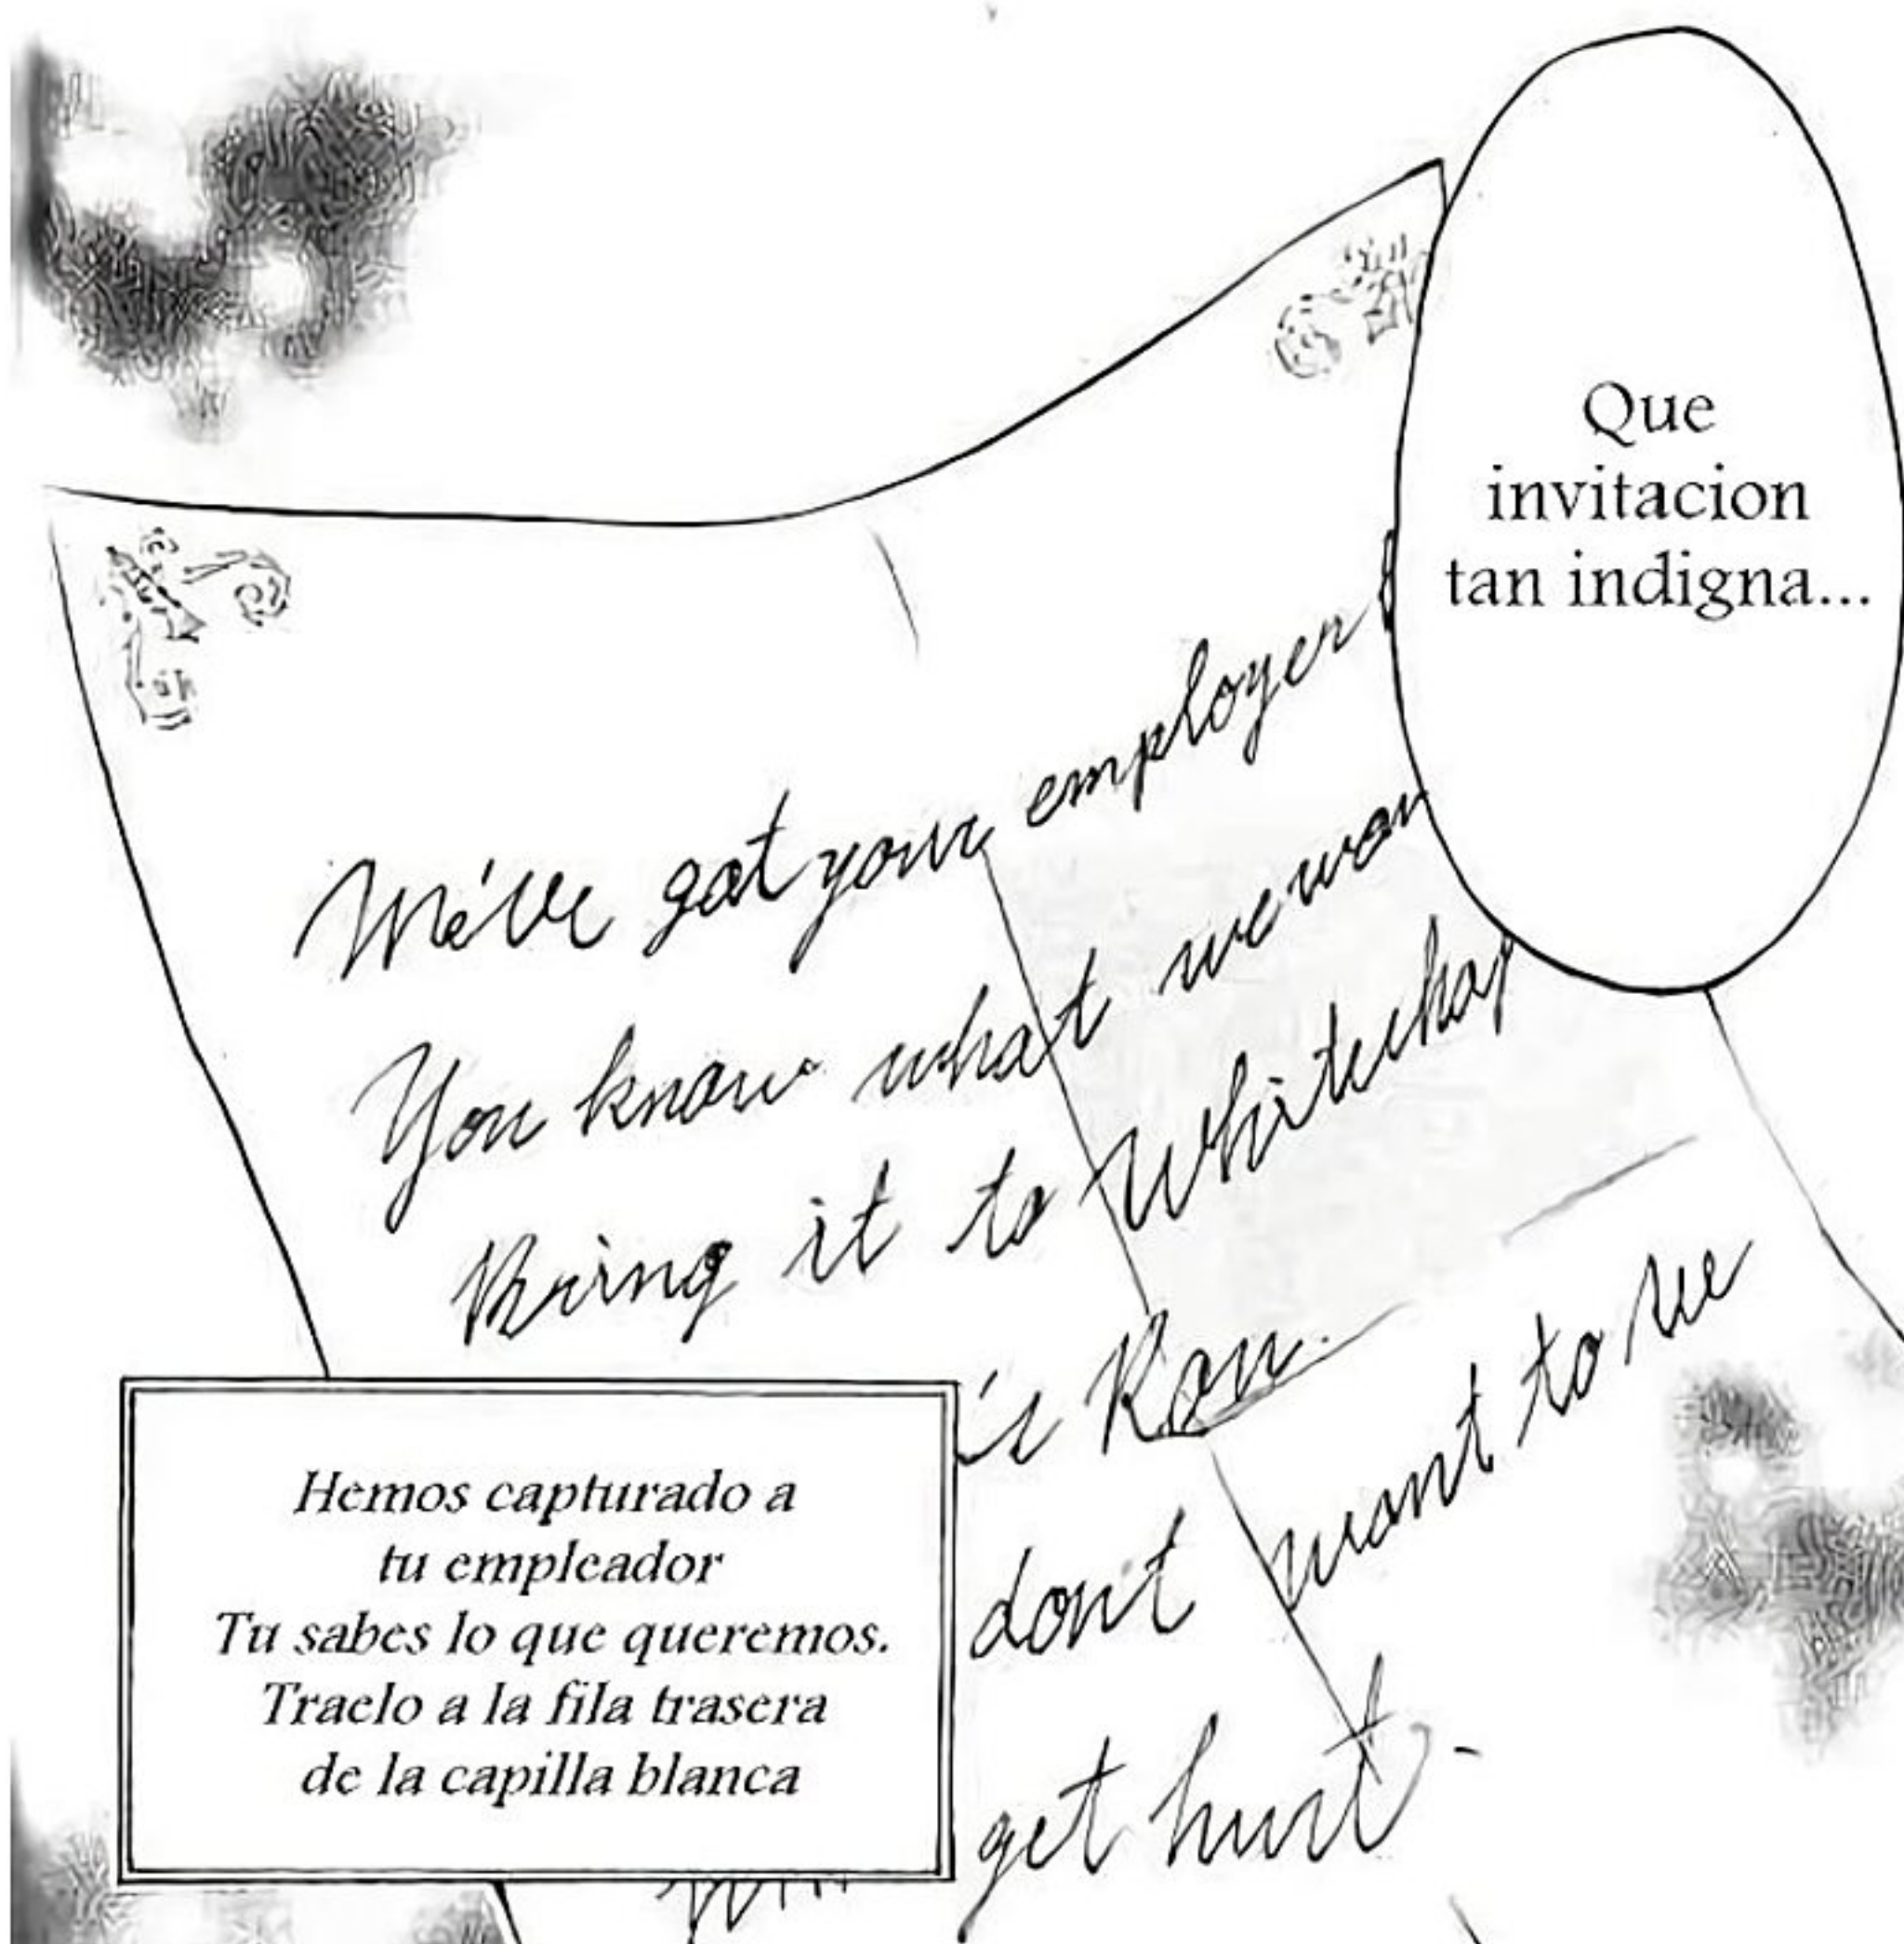 Que
invitacion
tan indigna...
We've got your employer
You know what we
Bring it to
Row.
don't want to see
get hurt.
Hemos capturado a
tu empleador
Tu sabes lo que queremos.
Traelo a la fila trasera
de la capilla blanca